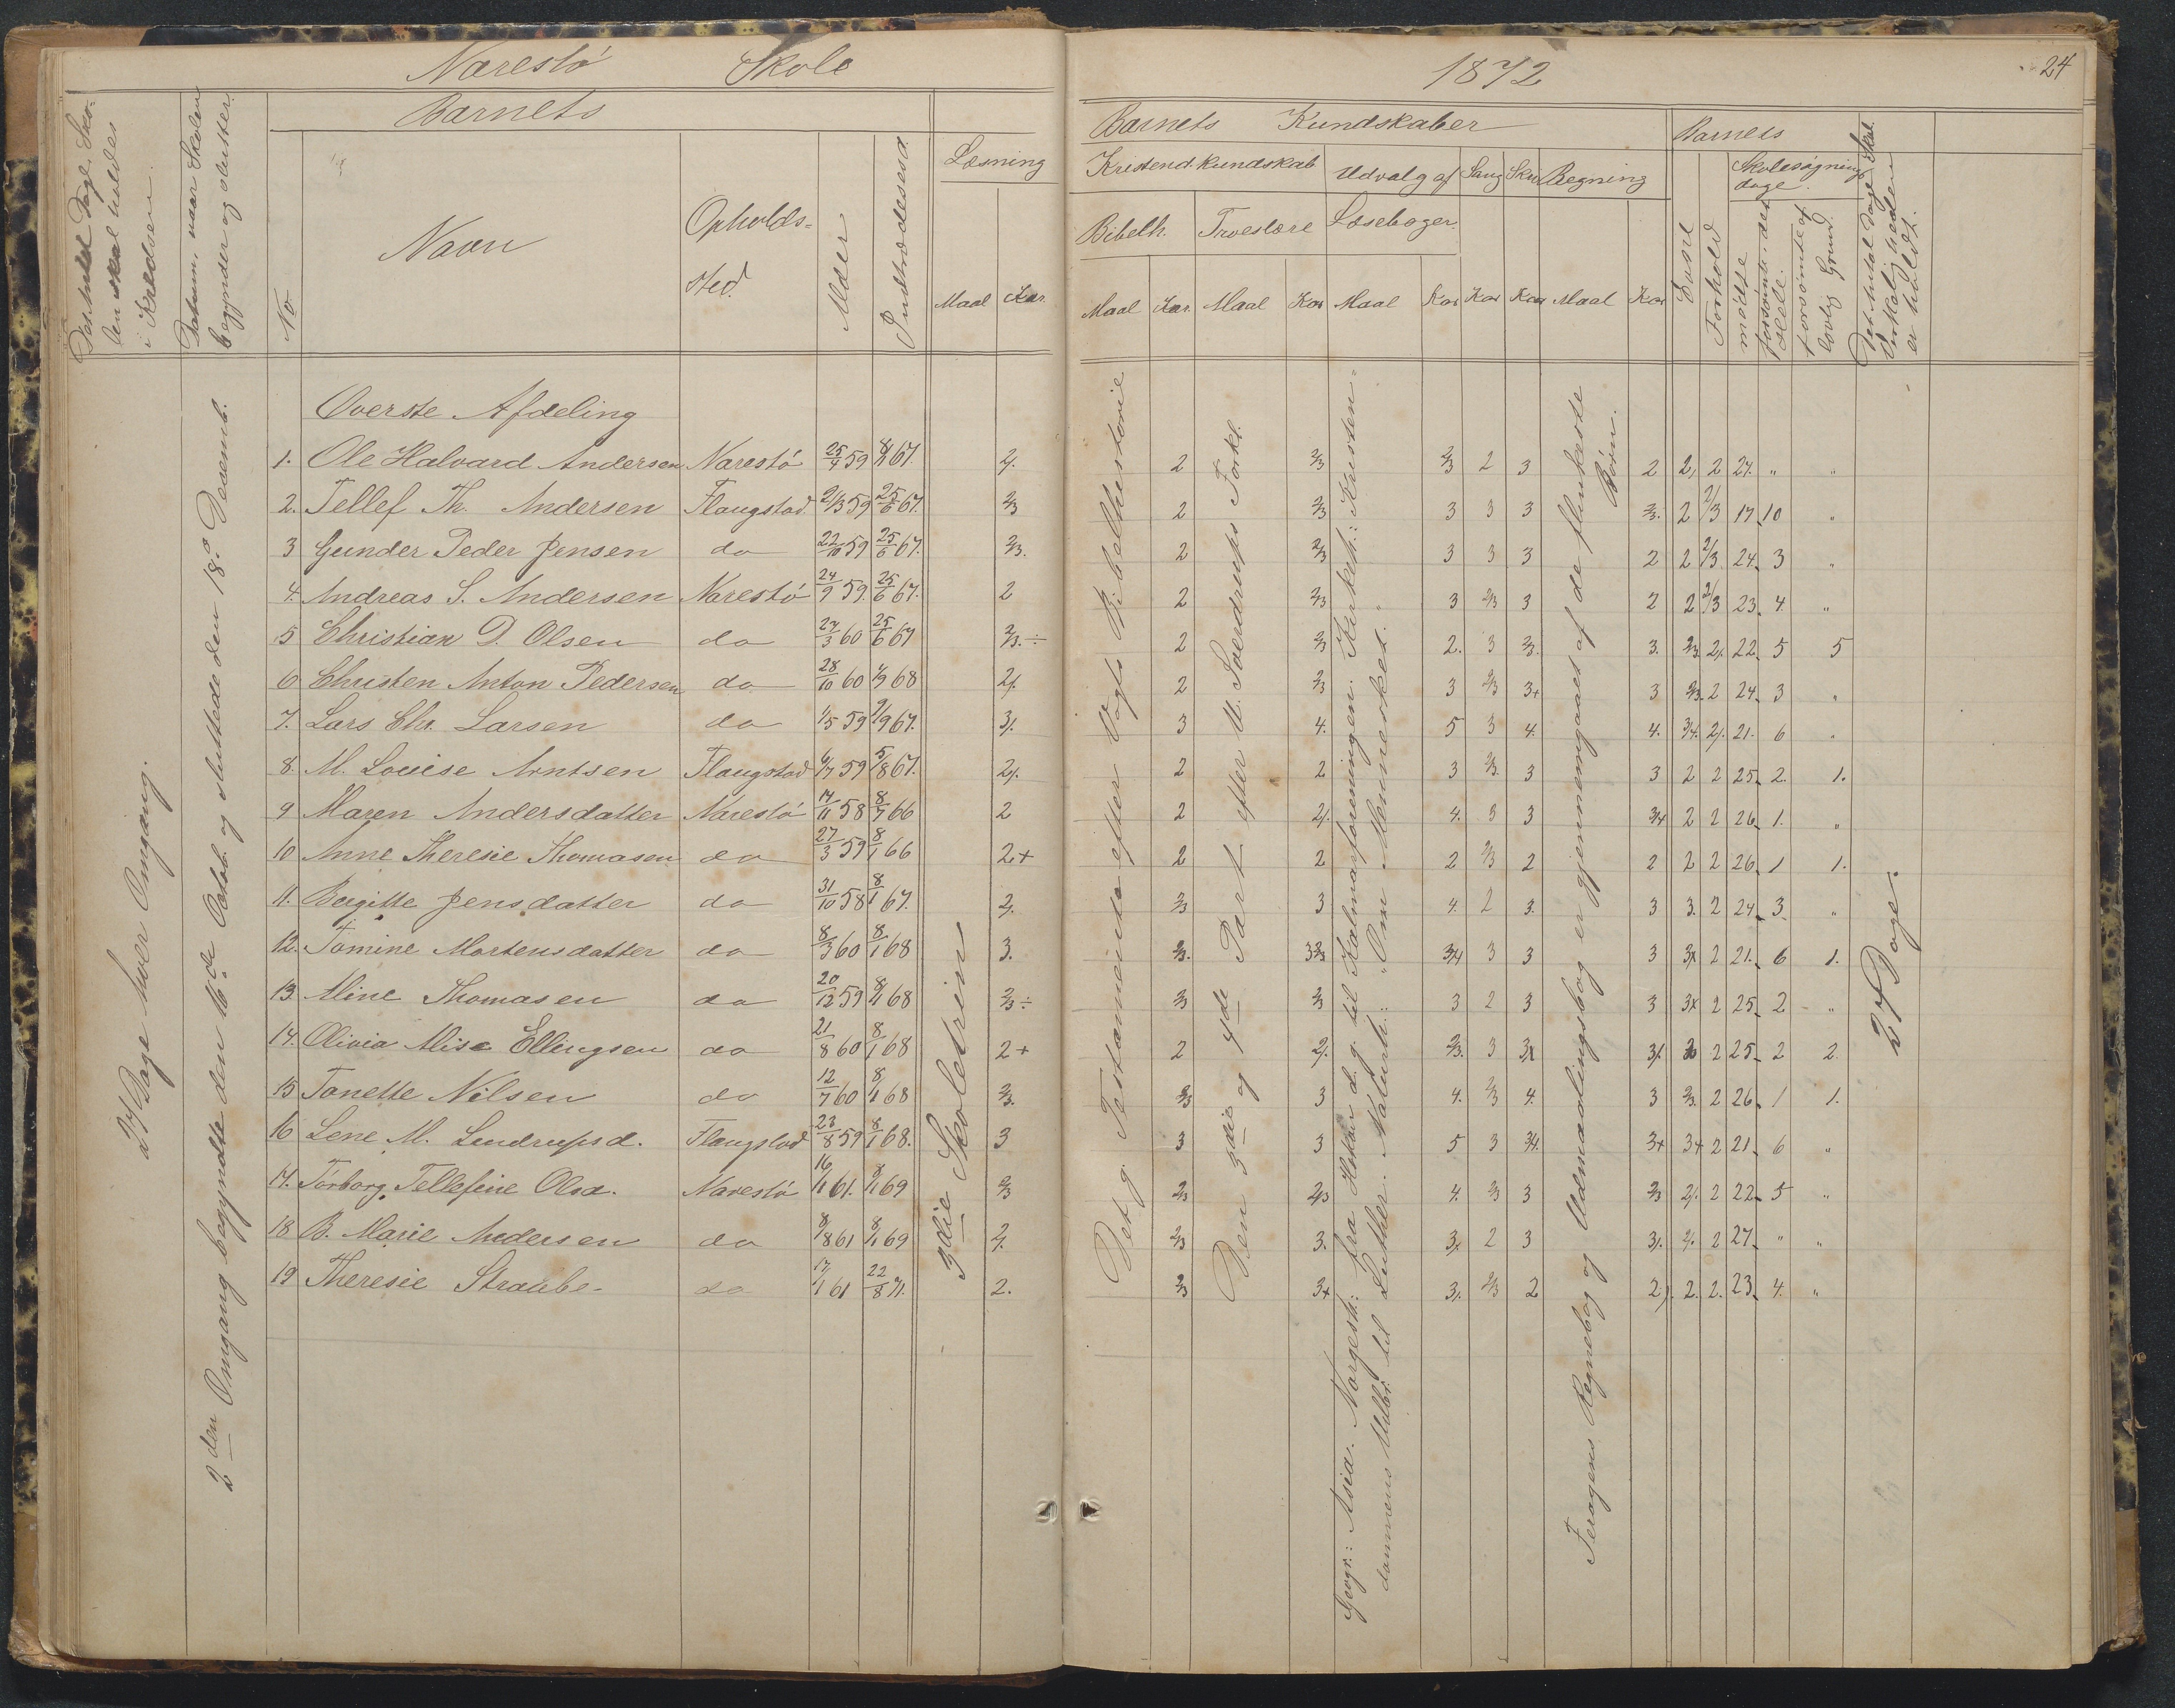 Narestö Skole
1872
24
Det Antal Dage, Sko-
len skal holdes
i Kredsen.
Datum, naar Skolen
begynder og slutter.
Barnets
No
Navn
Opholds-
sted.
Alder
Indtrædelsestid.
Læsning
Maal Kar.
Barnets Kundskaber
Kristend. kundskab Udvalg af Sang Skr Regning
Bibelh. Troeslære Læsebøger.
Maal Kar. Maal Kar Maal Kar Kar Kar Maal Kar
Barnets
Evne
Forhold
Skolesögnings
dage.
mödte
forsömte det
Hele.
forsömte af
lovlig Grund.
Det Antal Dage Skol.
Virkelig heden
er holdt.
27 Dage hver Omgang.
2den Omgang begyndte den 16de Octob. og sluttede den 18de Decemb.
Överste Afdeling
1. Ole Halvard Andersen Narestö 25/4 59 8/1 67. 2/. 2 2/3 2/3 2 3 2 2/. 2 27. " "
2. Tellef Th. Andersen Flaugstad 2/3 59 25/6 67. 2/3 2 2/3 3 3 3 2/3. 2 2/3 17. 10 "
3 Gunder Peder Jensen do 22/10 59 25/6 67. 2/3. 2 2/3 3 3 3 2 2 2/3 24. 3 "
4. Andreas S. Andersen Narestö 24/9 59. 25/6 67. 2 2 2/3 3 2/3 3 2 2 2/3 23. 4. "
5 Christian D. Olsen do 27/3 60 25/6 67 2/3. ÷ 2 2/3 2. 3 2/3. 3. 2/3. 2/. 22. 5 5
6 Christen Anton Pedersen do 28/10 60 1/7 68 2/. 2 2/3 3 2/3 3+ 3 2/3. 2 24. 3 "
7. Lars Chr. Larsen do 1/5 59 9/9 67. 3/. 3 4. 5 3 4. 4. 3/4. 2/. 21. 6 "
8. M. Louise Arntsen Flaugstad 6/7 59 5/8 67. 2/. 2 2 3 2/3. 3 3 2 2 25. 2. 1.
9 Maren Andersdatter Narestö 14/11 58 8/7 66 2 2 2/. 4. 3 3 3/4 2 2 26. 1. "
10 Anne Theresie Thomasen do 27/3 59 8/1 66 2+ 2 2 2 2/3 2 2 2 2 26. 1 1.
11. Bergitte Jensdatter do 31/10 58 8/1 67. 2/. 2/3 3 4. 2 3. 3 3. 2 24. 3. "
12. Tomine Mortensdatter do 8/3 60 8/1 68 3. 2/3. 3/4 3 3 3 2 21. 6 1.
13. Aline Thomasen do 20/12 59 8/1 68 2/3 ÷ 2/3 2/3 3 2 3 3 3+ 2 25. 2 "
14. Olivia Alise Ellingsen do 21/8 60 8/1 68 2+ 2 2/. 2/3. 3 3/. 2 25. 2 2
15 Tonette Nilsen do 12/7 60 8/1 68 2/3. 2/3 3 4. 2/3 4. 3 2/3. 2 26. 1 1.
16 Lene M. Lindrupsd. Flaugstad 23/8 59 8/1 68. 3 3 3 5 3 3/4. 3+ 3+ 2 21. 6 "
17. Torborg Tellefine Olsd. Narestö 16/1 61. 8/1 69 2/3 2/3 2/3 4. 2/3 3 2/3 2/. 2 22. 5 "
18 B. Marie Andersen do 8/8 61 8/1 69 2/. 2/3 3. 3/. 2 3 3/. 2/. 2 27. " "
19 Theresie Straube- do 17/1 61 22/8 71. 2. 2/3 3+ 3/. 2/3 2 2/. 2. 2. 23. 4. "
3die Skoletrin
Det g. Testamente efter Vogts Bibelhistorie
Den 3die og 4de Part efter U. Sverdrups Forkl.
Geogr.: Asia. Norgesh: fra Hakon d. g. til Kalmarforeningen. Kirkeh: Kristen-
dommens Udbr. til Luther. Naturh: "Om Mennesket."
Feragens Regnebog og Udmaalingsbog er gjennemgaaet af de flinkeste
Börn.
27 Dage.